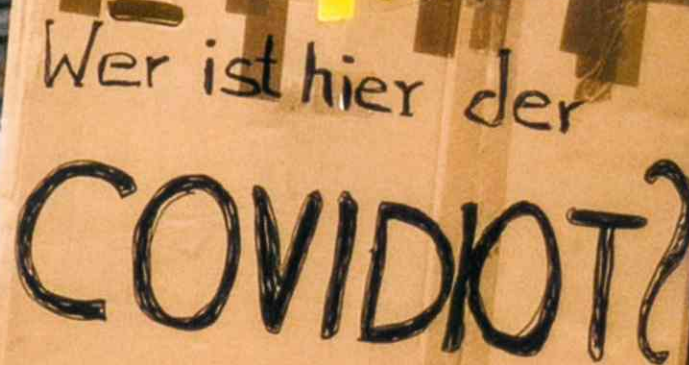 Wer ist hier der
COVIDIOT?